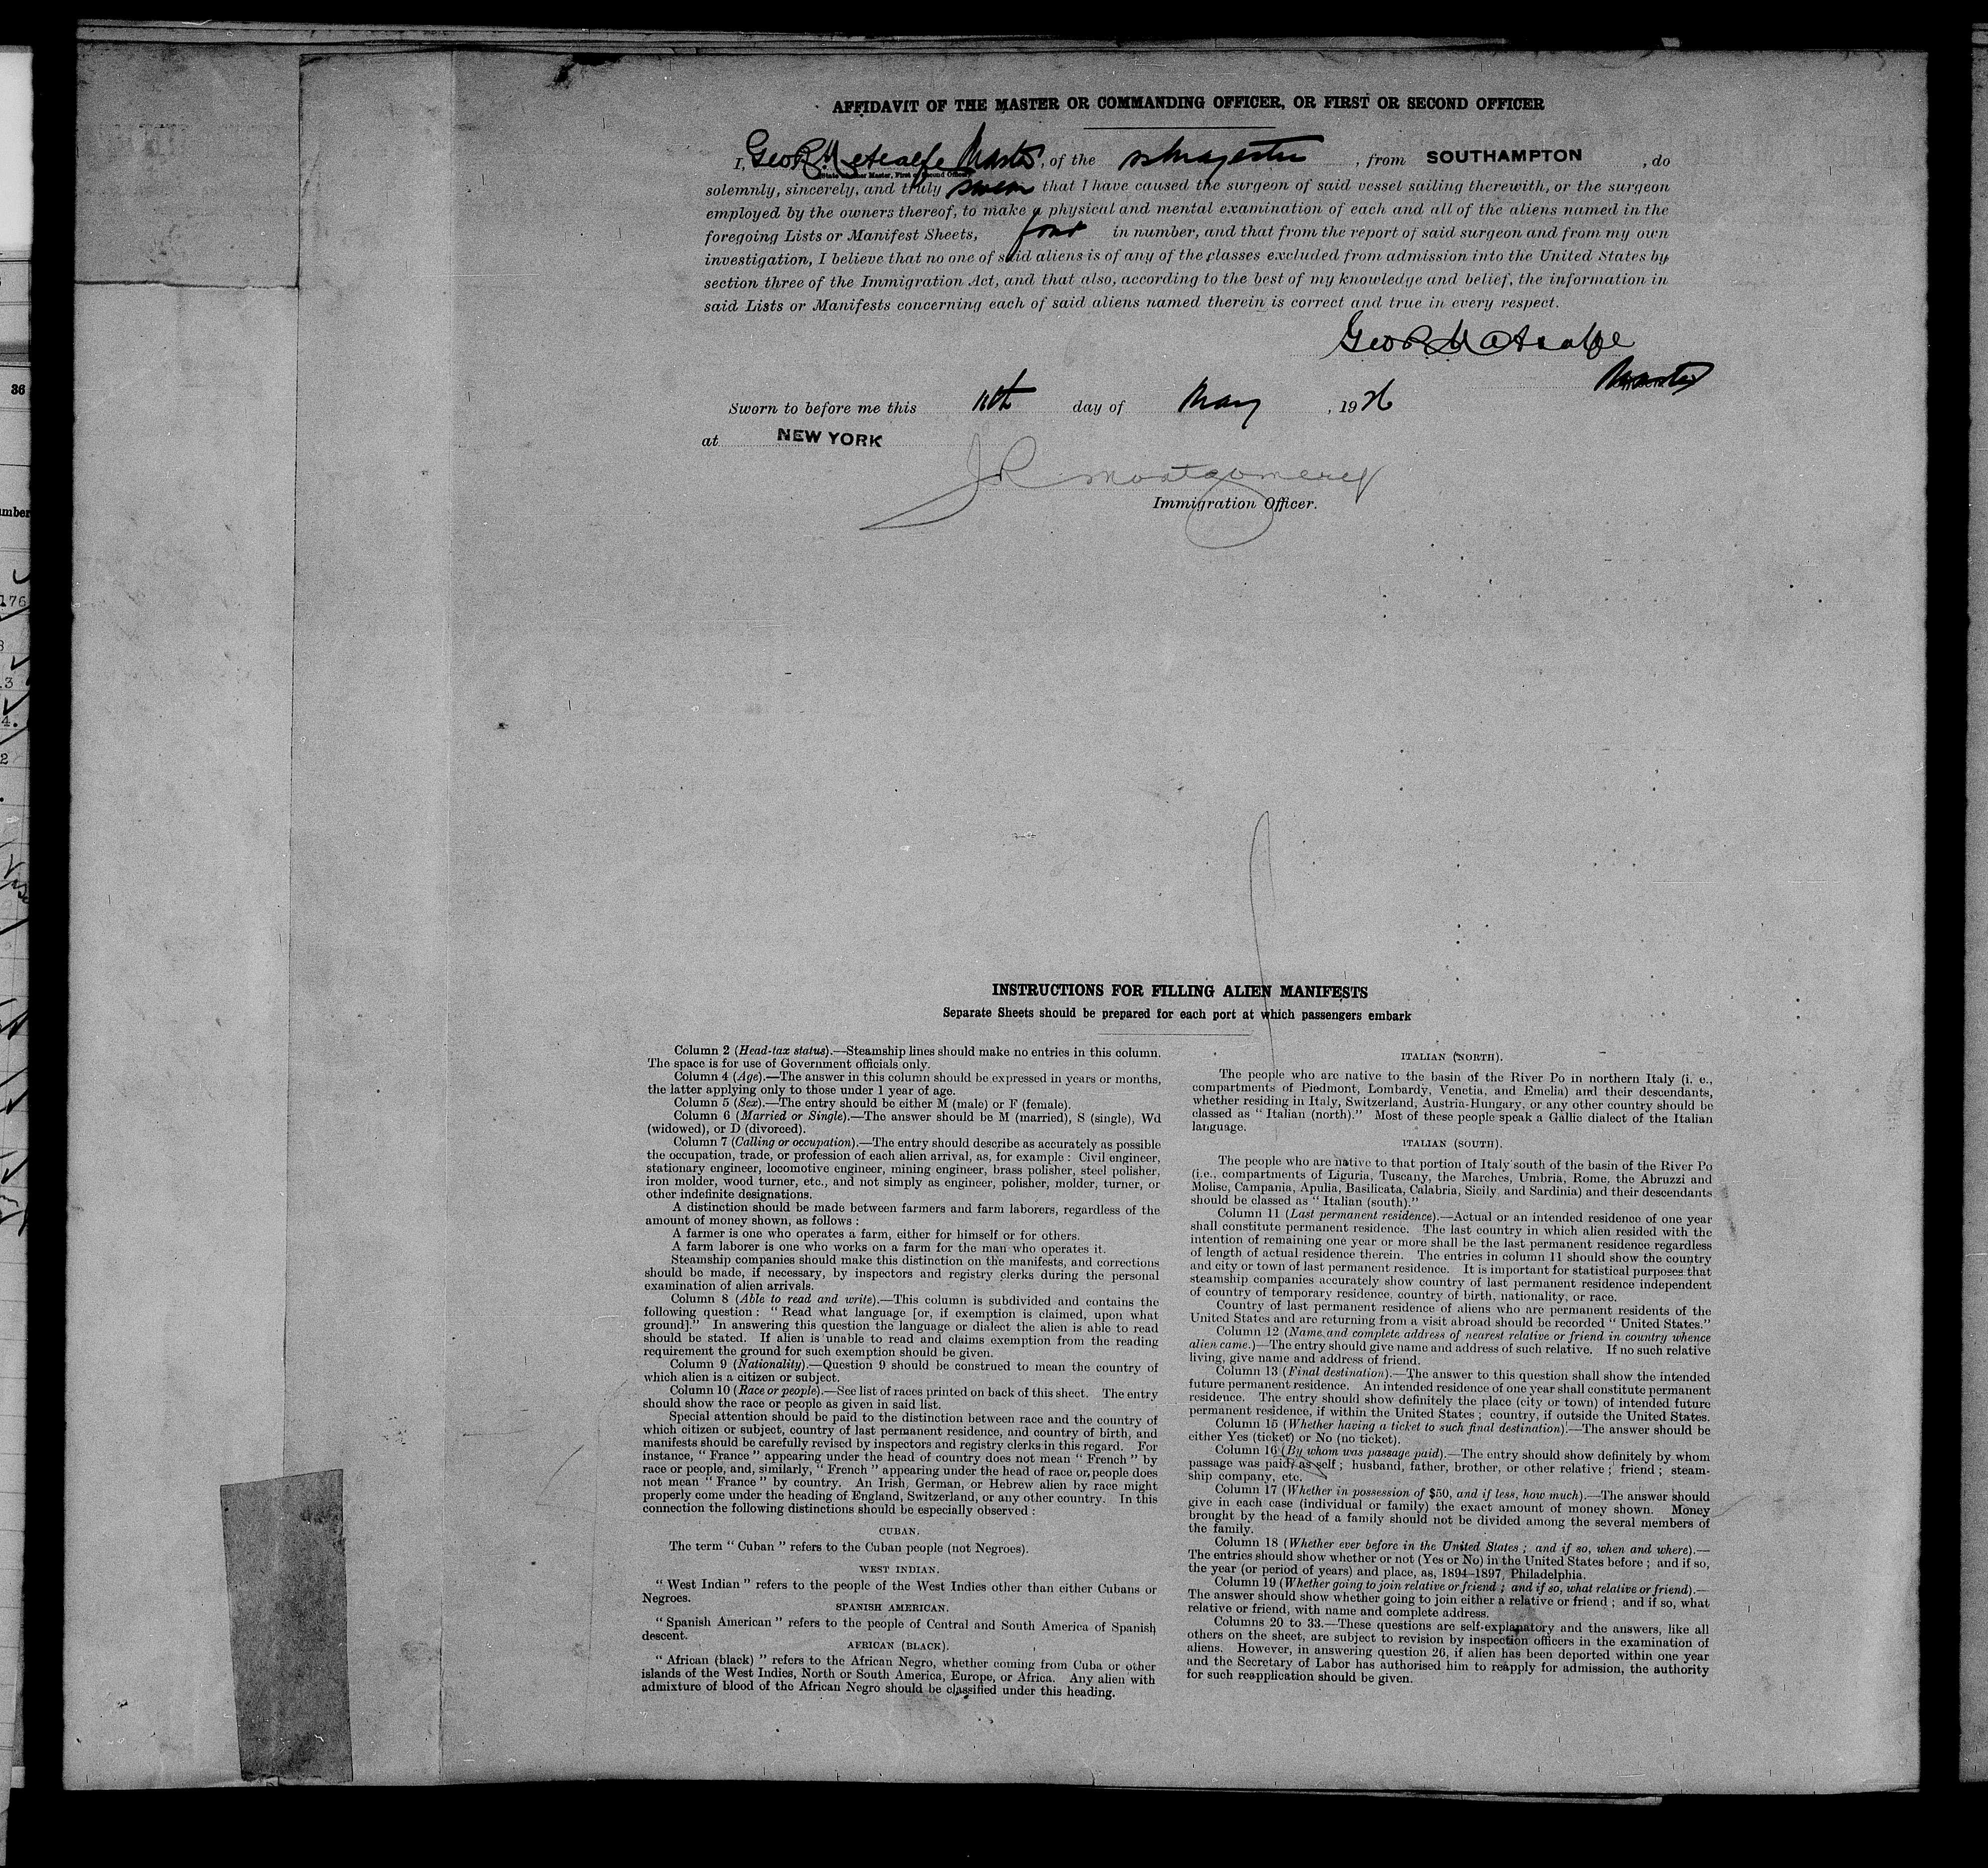 AFFIDAVIT OF THE MASTER OR COMMANDING OFFICER, OR FIRST OR SECOND OFFICER
I, Geo R Metcalfe Master, of the ss Majestic, from SOUTHAMPTON, do
solemnly, sincerely, and truly swear that I have caused the surgeon of said vessel sailing therewith, or the surgeon
employed by the owners thereof, to make a physical and mental examination of each and all of the aliens named in the
foregoing Lists or Manifest Sheets, four in number, and that from the report of said surgeon and from my own
investigation, I believe that no one of said aliens is of any of the classes excluded from admission into the United States by
section three of the Immigration Act, and that also, according to the best of my knowledge and belief, the information in
said Lists or Manifests concerning each of said aliens named therein is correct and true in every respect.
Geo R Metcalfe
Master
Sworn to before me this 11th day of May, 1926
at NEW YORK
J R Montgomery
Immigration Officer.
INSTRUCTIONS FOR FILLING ALIEN MANIFESTS
Separate Sheets should be prepared for each port at which passengers embark
Column 2 (Head-tax status).—Steamship lines should make no entries in this column.
The space is for use of Government officials only.
Column 4 (Age).—The answer in this column should be expressed in years or months,
the latter applying only to those under 1 year of age.
Column 5 (Sex).—The entry should be either M (male) or F (female).
Column 6 (Married or Single).—The answer should be M (married), S (single), Wd
(widowed), or D (divorced).
Column 7 (Calling or occupation).—The entry should describe as accurately as possible
the occupation, trade, or profession of each alien arrival, as, for example : Civil engineer,
stationary engineer, locomotive engineer, mining engineer, brass polisher, steel polisher,
iron molder, wood turner, etc., and not simply as engineer, polisher, molder, turner, or
other indefinite designations.
A distinction should be made between farmers and farm laborers, regardless of the
amount of money shown, as follows :
A farmer is one who operates a farm, either for himself or for others.
A farm laborer is one who works on a farm for the man who operates it.
Steamship companies should make this distinction on the manifests, and corrections
should be made, if necessary, by inspectors and registry clerks during the personal
examination of alien arrivals.
Column 8 (Able to read and write).—This column is subdivided and contains the
following question : " Read what language [or, if exemption is claimed, upon what
ground]." In answering this question the language or dialect the alien is able to read
should be stated. If alien is unable to read and claims exemption from the reading
requirement the ground for such exemption should be given.
Column 9 (Nationality).—Question 9 should be construed to mean the country of
which alien is a citizen or subject.
Column 10 (Race or people).—See list of races printed on back of this sheet. The entry
should show the race or people as given in said list.
Special attention should be paid to the distinction between race and the country of
which citizen or subject, country of last permanent residence, and country of birth, and
manifests should be carefully revised by inspectors and registry clerks in this regard. For
instance, " France " appearing under the head of country does not mean " French " by
race or people, and, similarly, " French " appearing under the head of race or people does
not mean " France " by country. An Irish, German, or Hebrew alien by race might
properly come under the heading of England, Switzerland, or any other country. In this
connection the following distinctions should be especially observed :
CUBAN.
The term " Cuban " refers to the Cuban people (not Negroes).
WEST INDIAN.
" West Indian " refers to the people of the West Indies other than either Cubans or
Negroes.
SPANISH AMERICAN.
" Spanish American " refers to the people of Central and South America of Spanish
descent.
AFRICAN (BLACK).
" African (black) " refers to the African Negro, whether coming from Cuba or other
islands of the West Indies, North or South America, Europe, or Africa. Any alien with
admixture of blood of the African Negro should be classified under this heading.
ITALIAN (NORTH).
The people who are native to the basin of the River Po in northern Italy (i. e.,
compartments of Piedmont, Lombardy, Venetia, and Emelia) and their descendants,
whether residing in Italy, Switzerland, Austria-Hungary, or any other country should be
classed as " Italian (north)." Most of these people speak a Gallic dialect of the Italian
language.
ITALIAN (SOUTH).
The people who are native to that portion of Italy south of the basin of the River Po
(i.e., compartments of Liguria, Tuscany, the Marches, Umbria, Rome, the Abruzzi and
Molise, Campania, Apulia, Basilicata, Calabria, Sicily, and Sardinia) and their descendants
should be classed as " Italian (south)."
Column 11 (Last permanent residence).—Actual or an intended residence of one year
shall constitute permanent residence. The last country in which alien resided with the
intention of remaining one year or more shall be the last permanent residence regardless
of length of actual residence therein. The entries in column 11 should show the country
and city or town of last permanent residence. It is important for statistical purposes that
steamship companies accurately show country of last permanent residence independent
of country of temporary residence, country of birth, nationality, or race.
Country of last permanent residence of aliens who are permanent residents of the
United States and are returning from a visit abroad should be recorded " United States."
Column 12 (Name and complete address of nearest relative or friend in country whence
alien came.)—The entry should give name and address of such relative. If no such relative
living, give name and address of friend.
Column 13 (Final destination).—The answer to this question shall show the intended
future permanent residence. An intended residence of one year shall constitute permanent
residence. The entry should show definitely the place (city or town) of intended future
permanent residence, if within the United States ; country, if outside the United States.
Column 15 (Whether having a ticket to such final destination).—The answer should be
either Yes (ticket) or No (no ticket).
Column 16 (By whom was passage paid).—The entry should show definitely by whom
passage was paid, as self ; husband, father, brother, or other relative ; friend ; steam-
ship company, etc.
Column 17 (Whether in possession of $50, and if less, how much).—The answer should
give in each case (individual or family) the exact amount of money shown. Money
brought by the head of a family should not be divided among the several members of
the family.
Column 18 (Whether ever before in the United States ; and if so, when and where).—
The entries should show whether or not (Yes or No) in the United States before ; and if so,
the year (or period of years) and place, as, 1894–1897, Philadelphia.
Column 19 (Whether going to join relative or friend ; and if so, what relative or friend).—
The answer should show whether going to join either a relative or friend ; and if so, what
relative or friend, with name and complete address.
Columns 20 to 33.—These questions are self-explanatory and the answers, like all
others on the sheet, are subject to revision by inspection officers in the examination of
aliens. However, in answering question 26, if alien has been deported within one year
and the Secretary of Labor has authorised him to reapply for admission, the authority
for such reapplication should be given.